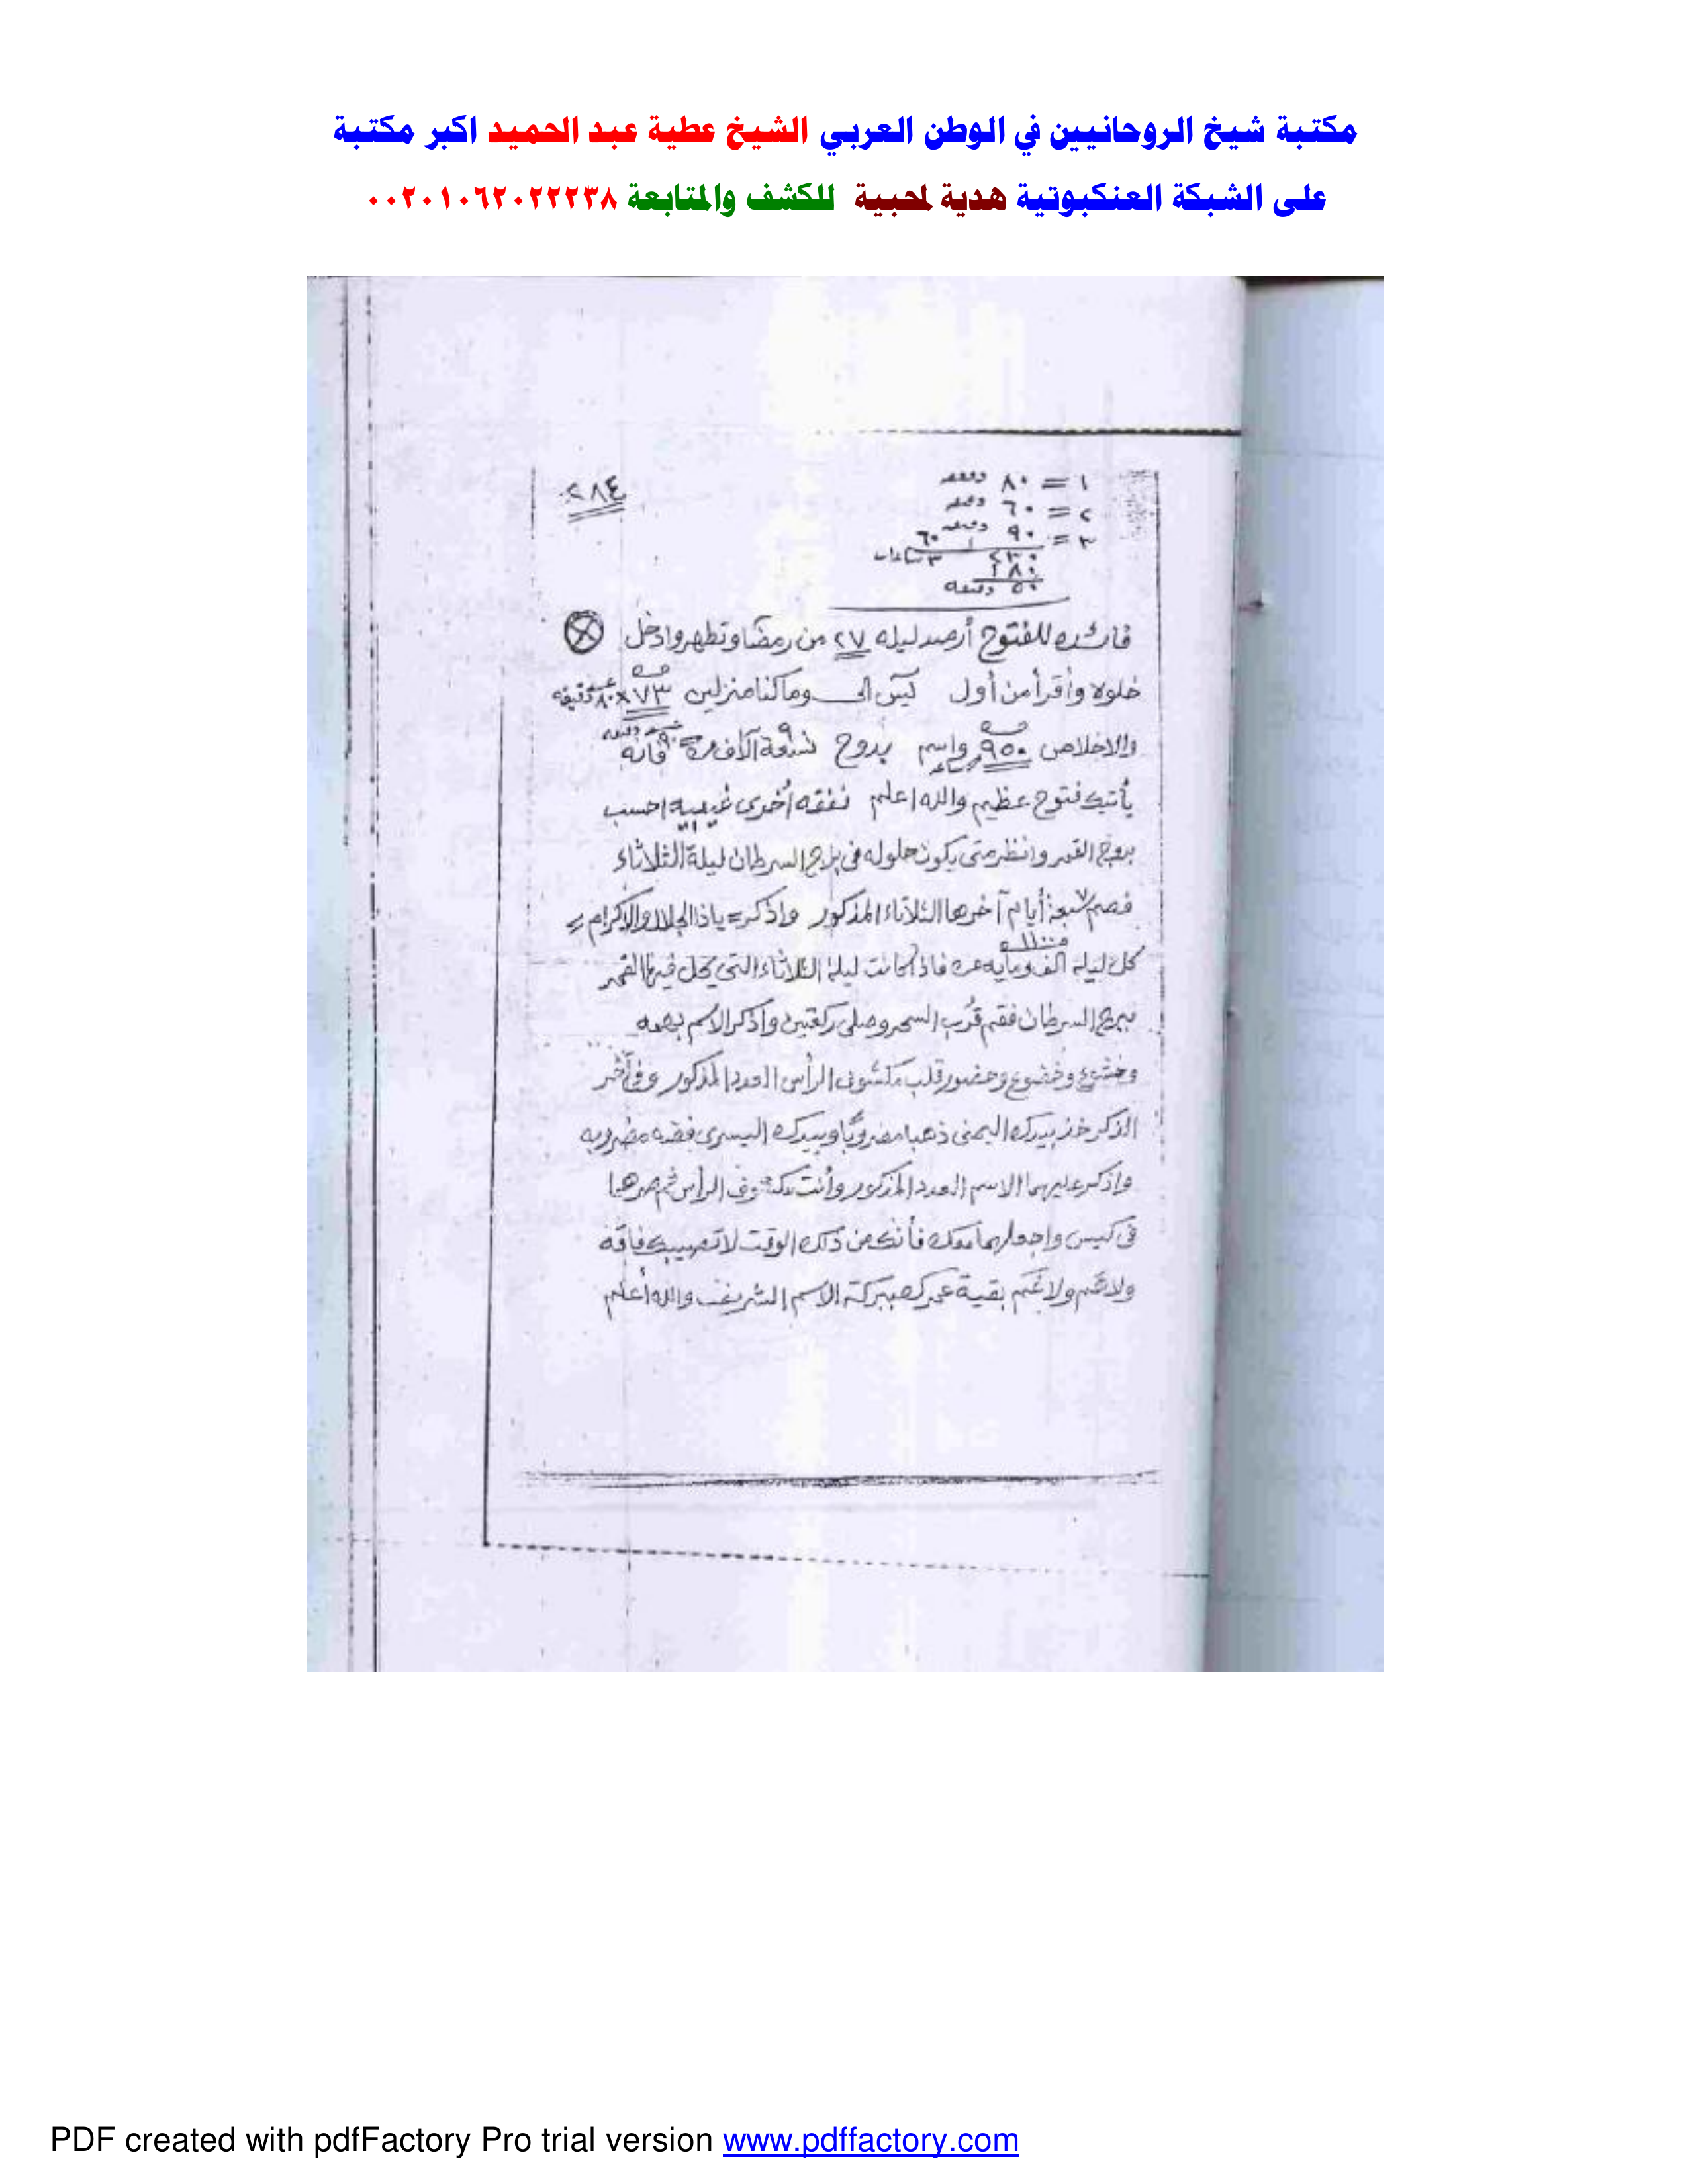 مكتبة شيخ الروحانيين في الوطن العربي الشيخ عطية عبد الحميد اكبر مكتبة
على الشبكة العنكبوتية هدية لمحبية للكشف والمتابعة ٠٠٢٠١٠٦٢٠٢٢٢٣٨
٢٨٤
١ = ٨٠ دقيقه
٢ = ٦٠ دقيقه
٣ = ٩٠ دقيقه
٢٣٠ ٦٠
١٨٠ ٣ ساعات
٥٠ دقيقه
فائده للفتوح أرصد ليله ٢٧ من رمضا وتطهر وادخل
خلوه وأقرأ من أول يس الى وما كنا منزلين ٧٣ ٨٠ دقيقه
والاخلاص ٩٥٠ واسم بدوح تسعة آلاف مرة فانه
يأتيك فتوح عظيم والله اعلم نفقه أخرى غيبيه احسب
بروج القمر وانظر متى يكون حلوله فى برج السرطان ليلة الثلاثاء
فصم سبعة أيام آخرها الثلاثاء المذكور واذكر = ياذا الجلال والإكرام =
١١٠٠
كل ليله الف ومايه مره فاذا كانت ليلة الثلاثاء التى يحل فيها القمر
ببرج السرطان فقم قرب السحر وصلى ركعتين واذكر الاسم
وخشوع وخضوع وحضور قلب مكشوف الرأس العدد المذكور وفى آخر
الذكر خذ بيدك اليمنى ذهبا مضروبًا وبيدك اليسرى فضه مضروبه
واذكر عليهما الاسم العدد المذكور وأنت مكشوف الرأس ثم صرهما
فى كيس واجعلهما معك فأنك من ذلك الوقت لا تصيبك فاقه
ولا هم ولا غم بقية عمرك ببركة الاسم الشريف والله أعلم
PDF created with pdfFactory Pro trial version www.pdffactory.com